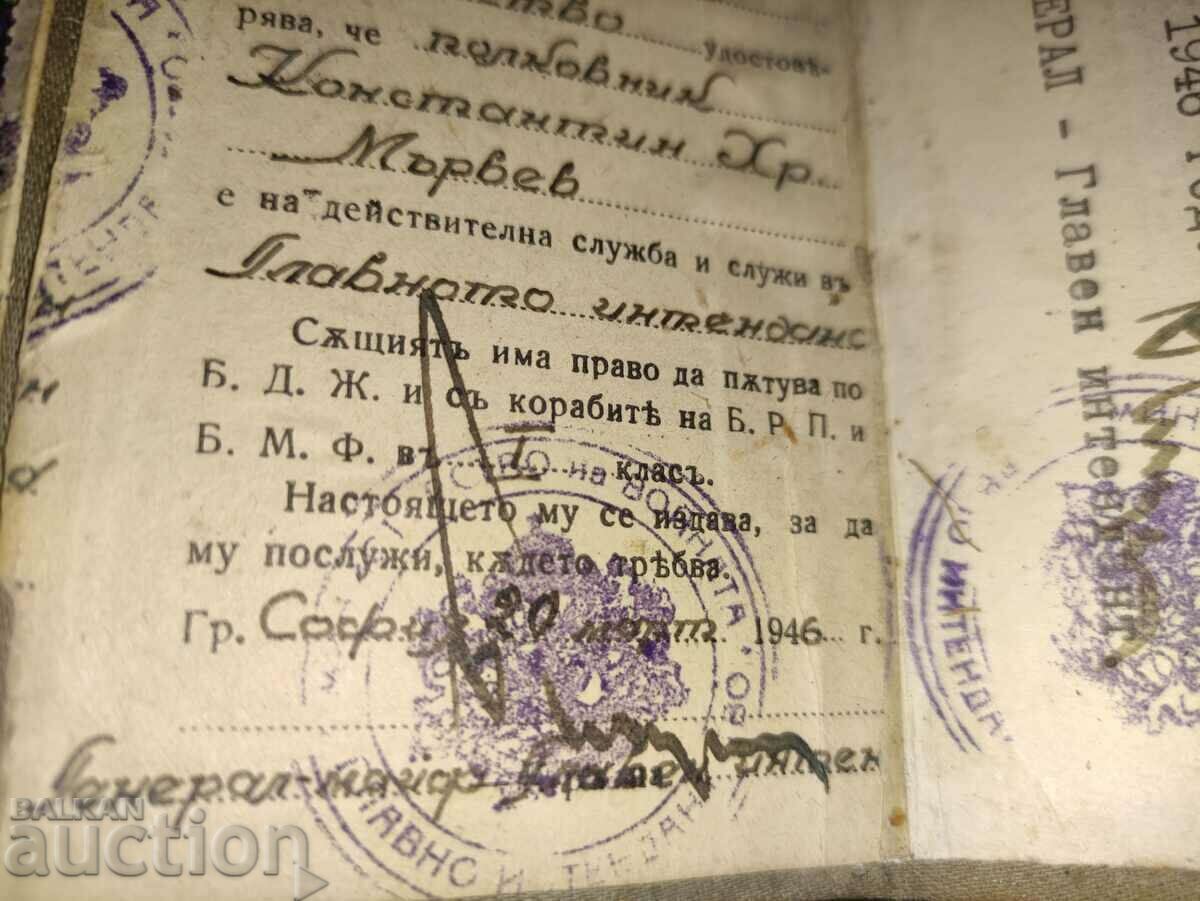 ство удостовѣ-
рява, че полковник
Константин Хр.
Мървев
е на действителна служба и служи въ
Главното интенданс
Сѫщиятъ има право да пѫтува по
Б. Д. Ж. и съ корабитѣ на Б. Р. П. и
Б. М. Ф. въ I класъ.
Настоящето му се издава, за да
му послужи, кѫдето трѣбва.
Гр. София 20 март 1946 г.
Генерал-майор Главен интен
СТВО на ВОЙНАТА
ГЛАВНО ИНТЕНДАН
1946 ГОД
ЕРАЛ - Главен интендант.
О ИНТЕНДА
BALKAN
auction